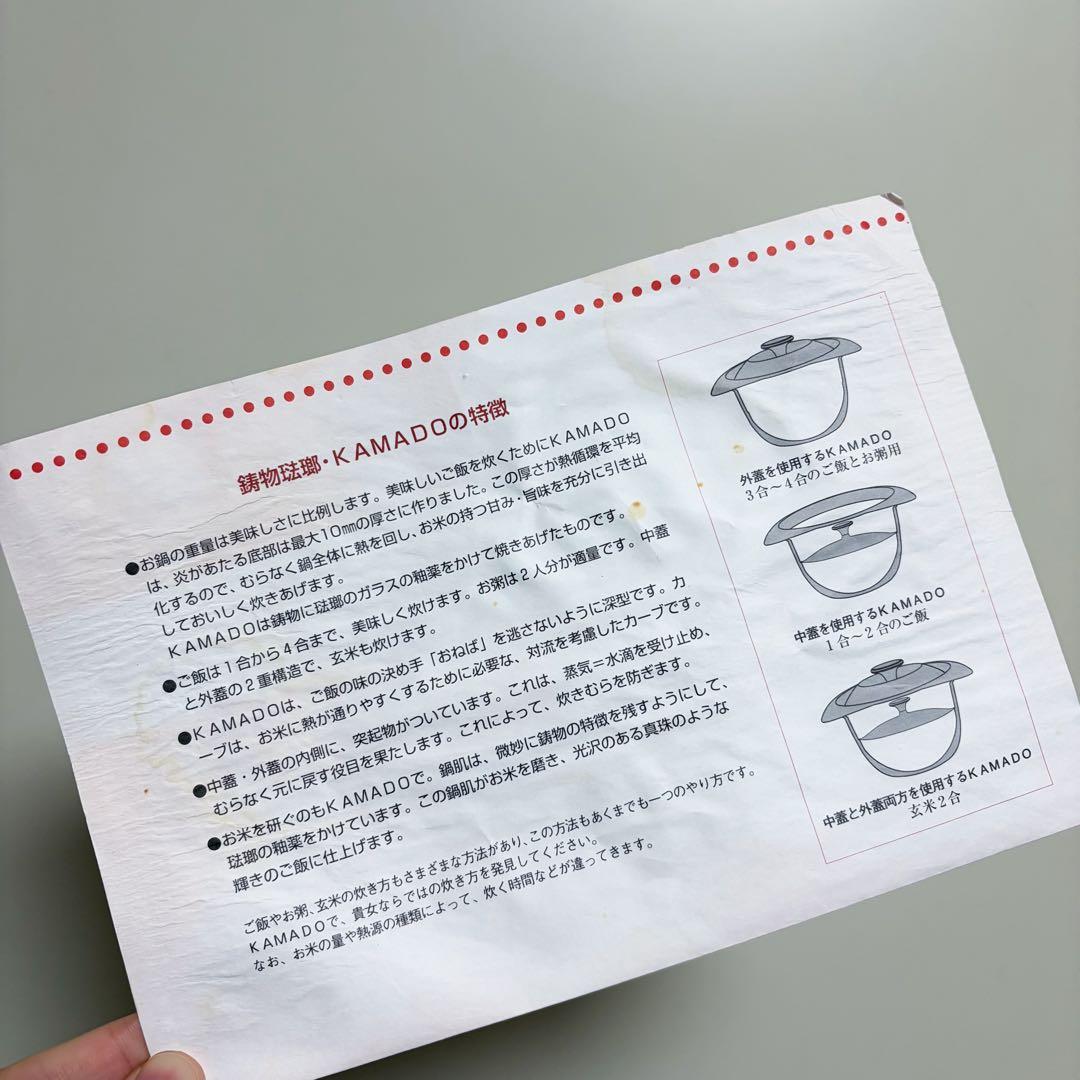 鋳物琺瑯・KAMADOの特徴
●お鍋の重量は美味しさに比例します。美味しいご飯を炊くためにKAMADO
は、炎があたる底部は最大10mmの厚さに作りました。この厚さが熱循環を平均
化するので、むらなく鍋全体に熱を回し、お米の持つ甘み・旨味を充分に引き出
しておいしく炊きあげます。
KAMADOは鋳物に琺瑯のガラスの釉薬をかけて焼きあげたものです。
●ご飯は1合から4合まで、美味しく炊けます。お粥は2人分が適量です。中蓋
と外蓋の2重構造で、玄米も炊けます。
●KAMADOは、ご飯の味の決め手「おねば」を逃さないように深型です。カ
ーブは、お米に熱が通りやすくするために必要な、対流を考慮したカーブです。
●中蓋・外蓋の内側に、突起物がついています。これは、蒸気=水滴を受け止め、
むらなく元に戻す役目を果たします。これによって、炊きむらを防ぎます。
●お米を研ぐのもKAMADOで。鍋肌は、微妙に鋳物の特徴を残すようにして、
琺瑯の釉薬をかけています。この鍋肌がお米を磨き、光沢のある真珠のような
輝きのご飯に仕上げます。
ご飯やお粥、玄米の炊き方もさまざまな方法があり、この方法もあくまでも一つのやり方です。
KAMADOで、貴女ならではの炊き方を発見してください。
なお、お米の量や熱源の種類によって、炊く時間などが違ってきます。
外蓋を使用するKAMADO
3合〜4合のご飯とお粥用
中蓋を使用するKAMADO
1合〜2合のご飯
中蓋と外蓋両方を使用するKAMADO
玄米2合